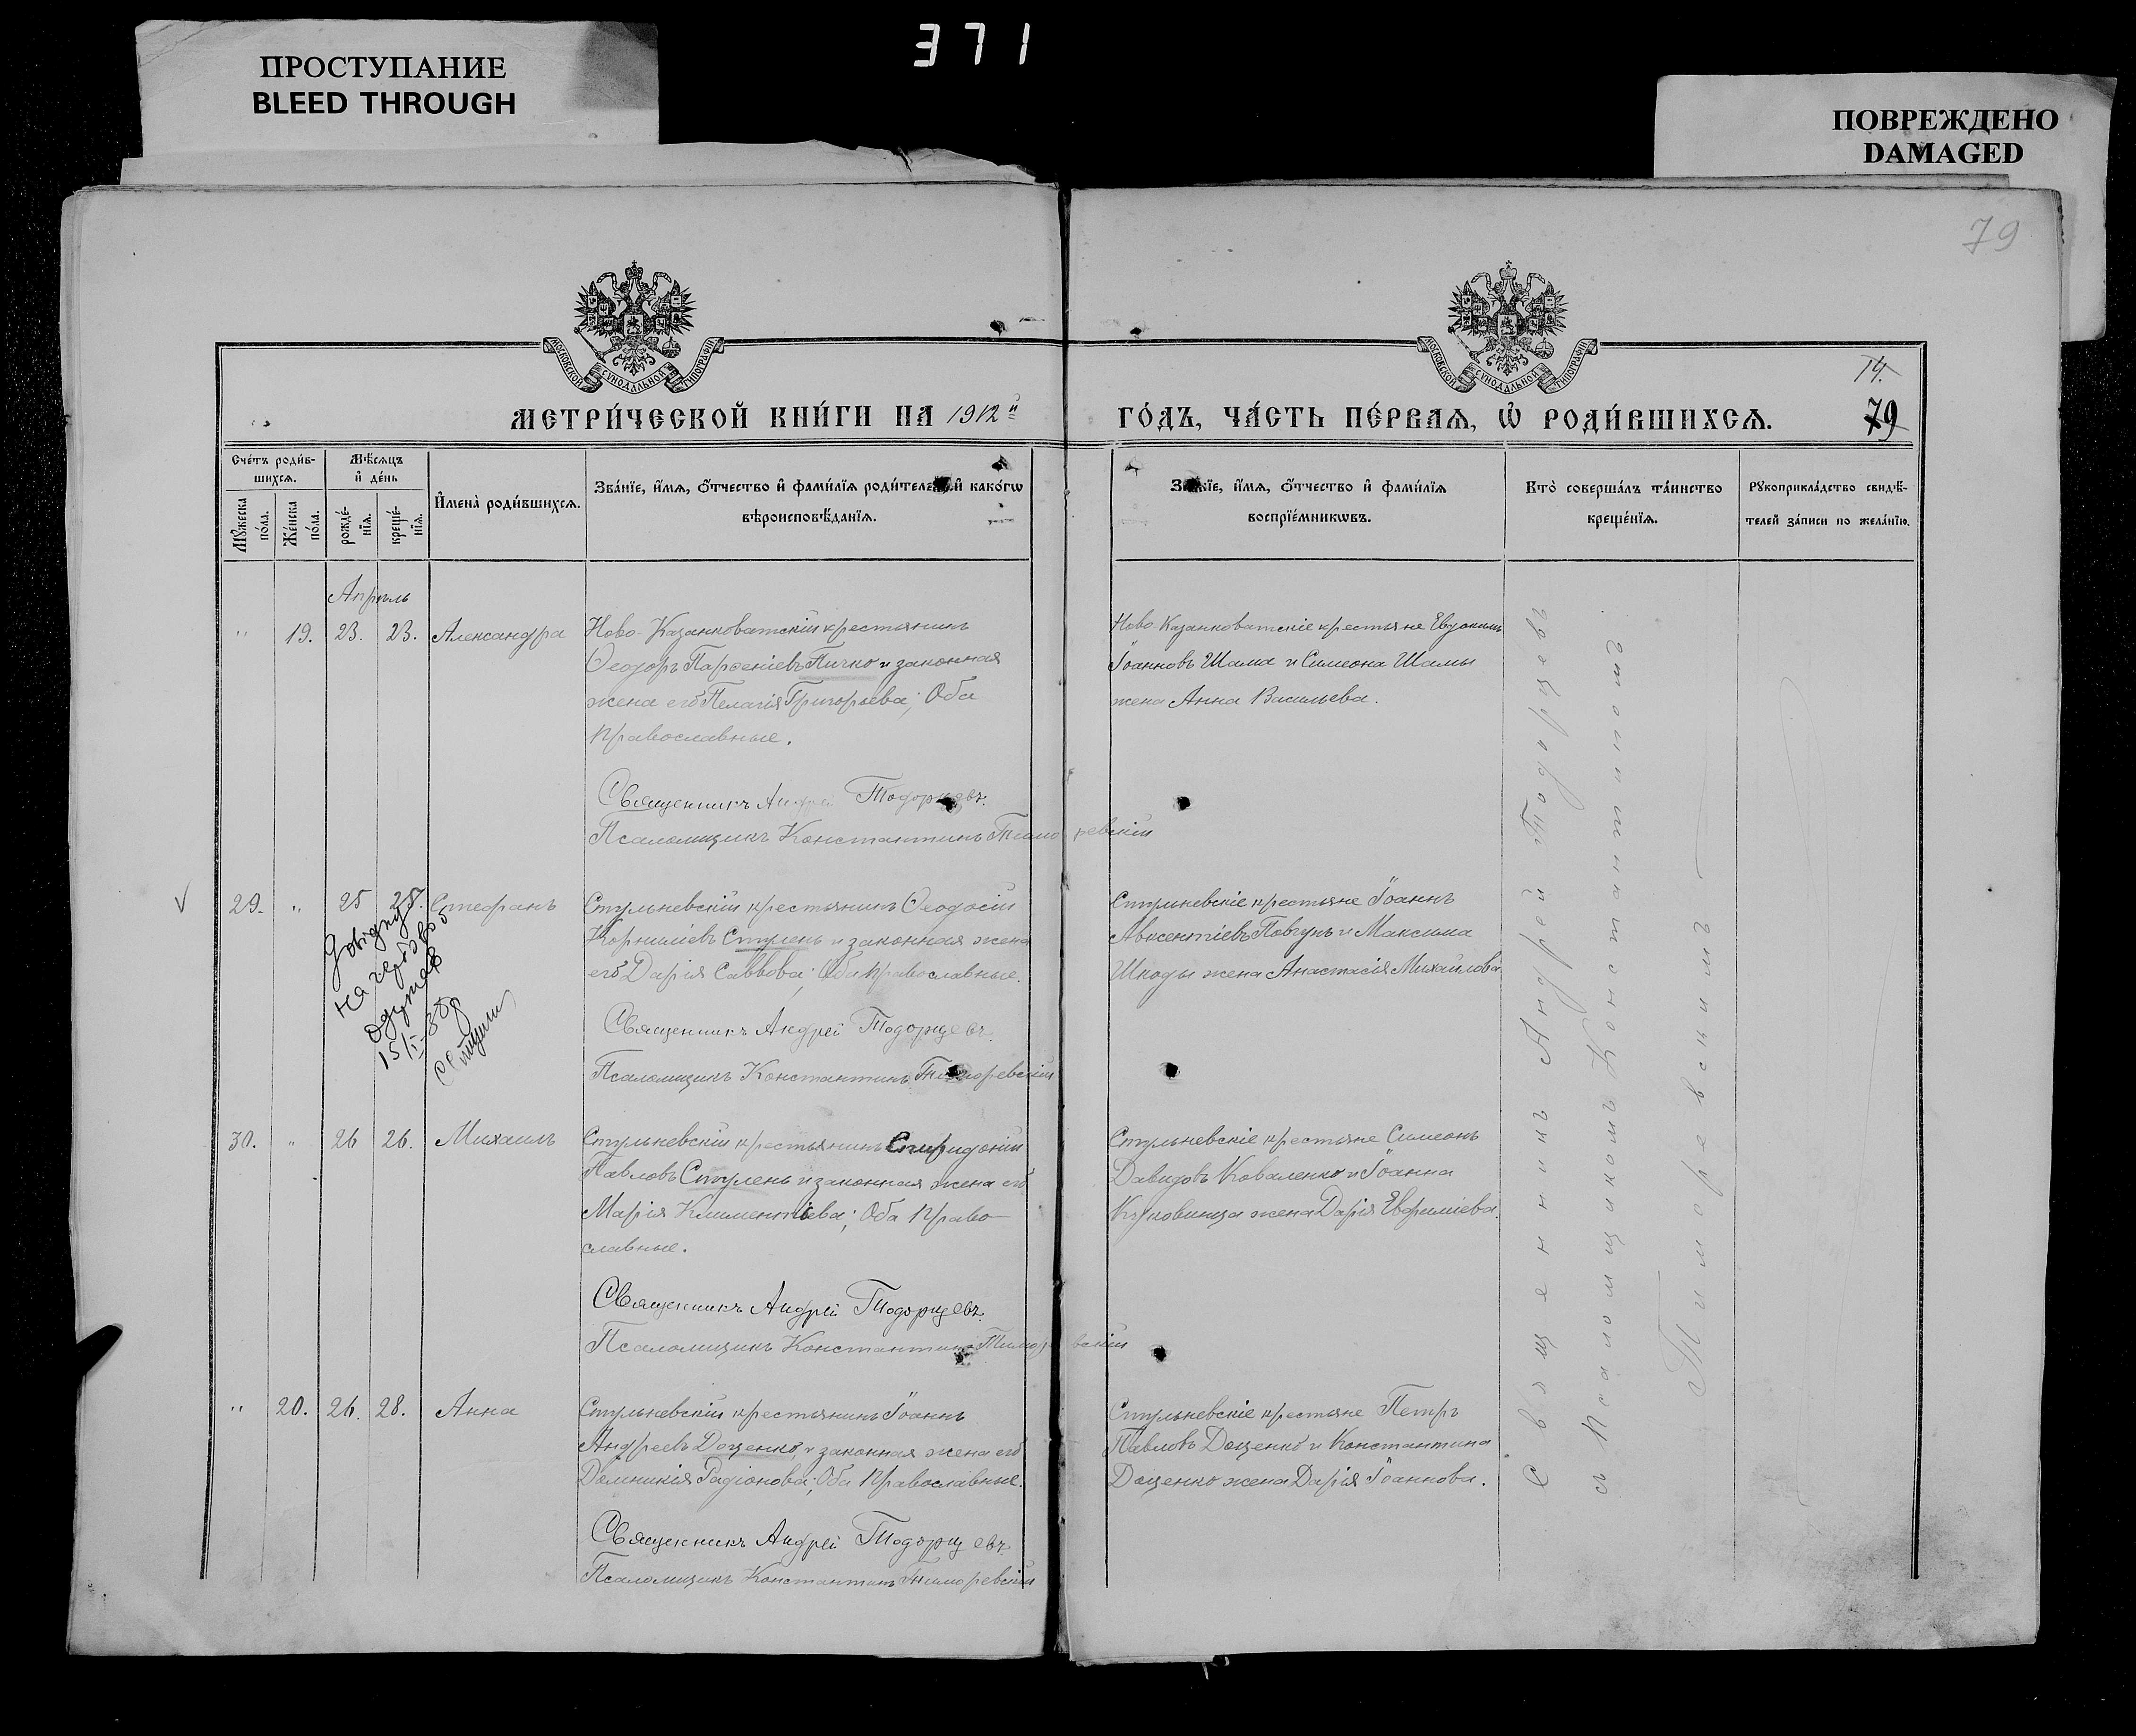 371
ПРОСТУПАНИЕ
BLEED THROUGH
ПОВРЕЖДЕНО
DAMAGED
79
МОСКОВСКОЙ СѴНОДАЛЬНОЙ ТИПОГРАФІИ
МОСКОВСКОЙ СѴНОДАЛЬНОЙ ТИПОГРАФІИ
14.
МЕТРИ́ЧЕСКОЙ КНИ́ГИ НА 1912й
ГО́ДЪ, ЧА́СТЬ ПЕ́РВАѦ, Ѡ҆ РОДИ́ВШИХСѦ.
79
Сче́тъ роди́в-
шихсѧ.
Мꙋ́жеска
по́ла.
Же́нска
по́ла.
Мѣ́сѧцъ
и҆ де́нь
рожде́-
нїѧ.
креще́-
нїѧ.
И҆мена̀ роди́вшихсѧ.
Зва́нїе, и҆́мѧ, ѻ҆́тчество и҆ фами́лїѧ роди́телей, и҆ како́гѡ
вѣроисповѣ́данїѧ.
Зва́нїе, и҆́мѧ, ѻ҆́тчество и҆ фами́лїѧ
воспрїе́мникѡвъ.
Кто̀ соверша́лъ та́инство
креще́нїѧ.
Рꙋкоприкла́дство свидѣ́-
телей за́писи по жела́нїю.
Апрѣль
" 19. 23. 23. Александра
Ново-Казанковатскій крестьянинъ
Ѳеодоръ Парѳеніевъ Пичко и законная
жена его Пелагія Григорьева; Оба
православные.
Священникъ Андрей Тодорцевъ.
Псаломщикъ Константинъ Тиморевскій
Ново Казанковатскіе крестьяне Евдокимъ
Іоанновъ Шама и Симеона Шамы
жена Анна Васильева.
29. " 25 28. Стефанъ
на
15/І-38р
Стульневскій крестьянинъ Ѳеодосій
Корниліевъ Ступень и законная жена
его Дарія Саввова; Оба православные.
Священникъ Андрей Тодорцевъ.
Псаломщикъ Константинъ Тиморевскій
Стульневскіе крестьяне Іоаннъ
Авксентіевъ Повгунъ и Максима
Шкоды жена Анастасія Михайлова
30. " 26 26. Михаилъ
Стульневскій крестьянинъ Спиридоній
Павловъ Ступень и законная жена его
Марія Климентіева; Оба право-
славные.
Священникъ Андрей Тодорцевъ.
Псаломщикъ Константинъ Тиморевскій
Стульневскіе крестьяне Симеонъ
Давидовъ Коваленко и Іоанна
жена Дарія Евфиміева.
" 20. 26. 28. Анна
Стульневскій крестьянинъ Іоаннъ
Андреевъ Доценко и законная жена его
Домникія Радіонова; Оба православные.
Священникъ Андрей Тодорцевъ.
Псаломщикъ Константинъ Тиморевскій
Стульневскіе крестьяне Петръ
Павловъ Доценко и Константина
Доценко жена Дарія Іоаннова.
Священникъ Андрей Тодорцевъ
съ Псаломщикомъ Константиномъ
Тиморевскимъ